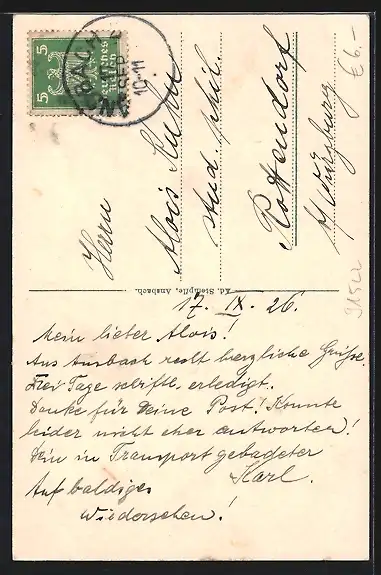 5 5
Deutsches Reich
ANSBACH
17 SEP
10-11
£6.-
Herrn
Alois
stud. phil.
Rottendorf
b/Würzburg
Ed. Stempfle, Ansbach.
17. IX. 26.
Mein lieber Alois!
Aus Ansbach recht herzliche Grüsse.
Tage schriftl. erledigt.
Danke für Deine Post! Konnte
leider nicht eher antworten!
Dein in Transport gebadeter
Karl.
Auf baldiges
Wiedersehen!